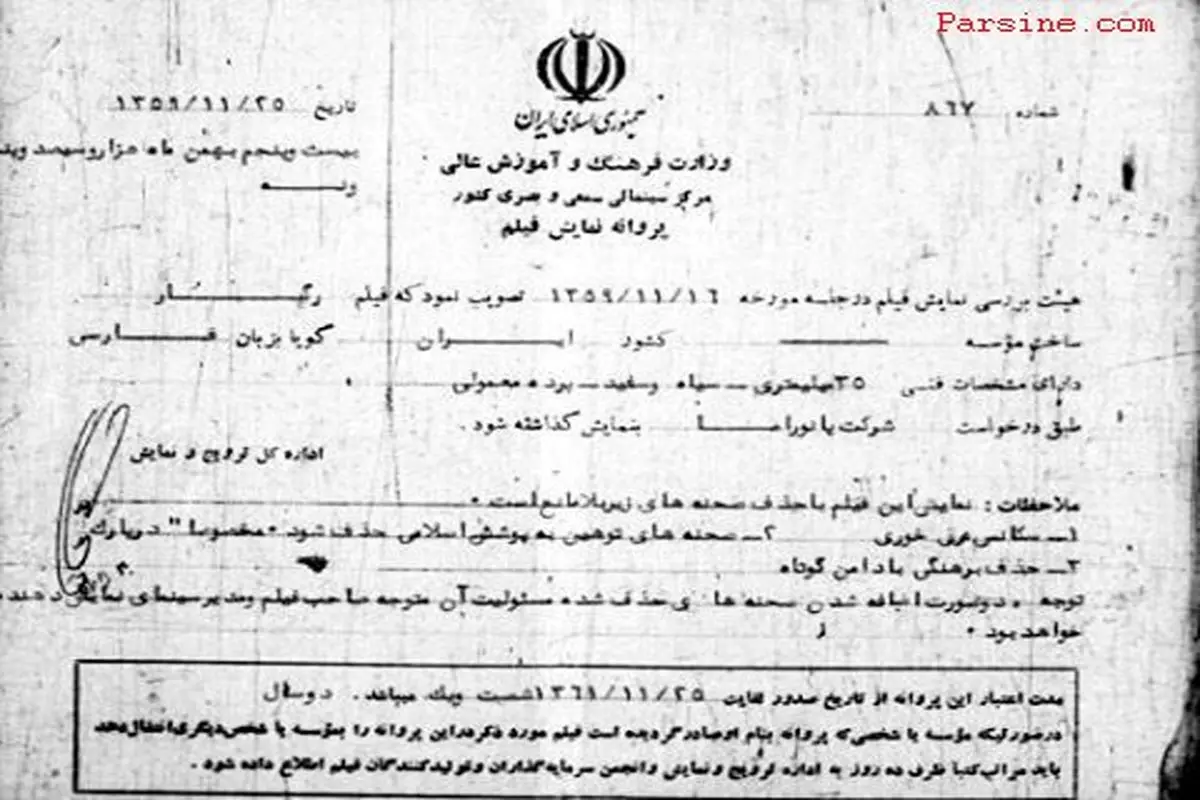 Parsine.com
جمهوری اسلامی ایران
شماره ۸۶۷
تاریخ ۱۳۵۹/۱۱/۲۵
وزارت فرهنگ و آموزش عالی
بیست وپنجم بهمن ماه هزاروسیصد وپنج
ونـــه
مرکز سینمائی سمعی و بصری کشور
پروانه نمایش فیلم
هیئت بررسی نمایش فیلم در جلسه مورخه ۱۳۵۹/۱۱/۱۶ تصویب نمود که فیلم رگبـــار
ساخت مؤسسه ــــ کشور ایـــران گویا بزبان فـــارسی
دارای مشخصات فنی ۳۵میلیمتری ــ سیاه وسفید ــ پرده معمولی
طبق درخواست شرکت پانورامـــا بنمایش گذاشته شود .
اداره کل ترویج و نمایش
ملاحظات : نمایش این فیلم با حذف صحنه های زیر بلامانع است .
۱ــ سکانس عرق خوری ۲ــ صحنه های توهین به پوشش اسلامی حذف شود . مخصوصا" در پارک
۳ــ حذف برهنگی با دامن کوتاه
توجه . در صورت اضافه شدن صحنه های حذف شده مسئولیت آن متوجه صاحب فیلم ومدیر سینمای نمایش دهنده
خواهد بود .
مدت اعتبار این پروانه از تاریخ صدور لغایت ۱۳۶۱/۱۱/۲۵ شصت ویک میباشد . دوسال
در صورتیکه مؤسسه یا شخصی که پروانه بنام او صادر گردیده است فیلم مورد ذکر در این پروانه را بمؤسسه یا شخص دیگری انتقال دهد
باید مراتب کتبا ظرف ده روز به اداره ترویج و نمایش و انجمن سرمایه گذاران و تولید کنندگان فیلم اطلاع داده شود .